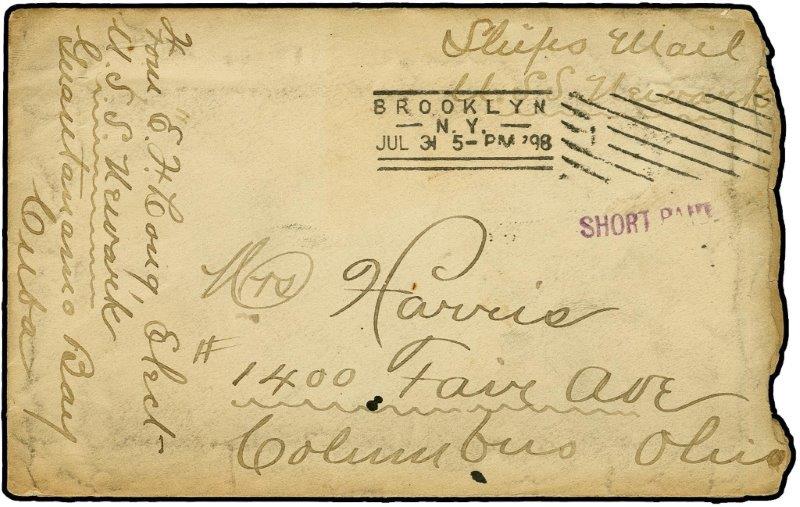 Ships Mail
U.S.S. Newark
BROOKLYN
N.Y.
JUL 31 5-PM '98
SHORT PAID
From "E. F. Long, Elect-
U.S.S. Newark
Guantanamo Bay
Cuba
Mrs Harris
# 1400 Fair Ave
Columbus Ohio